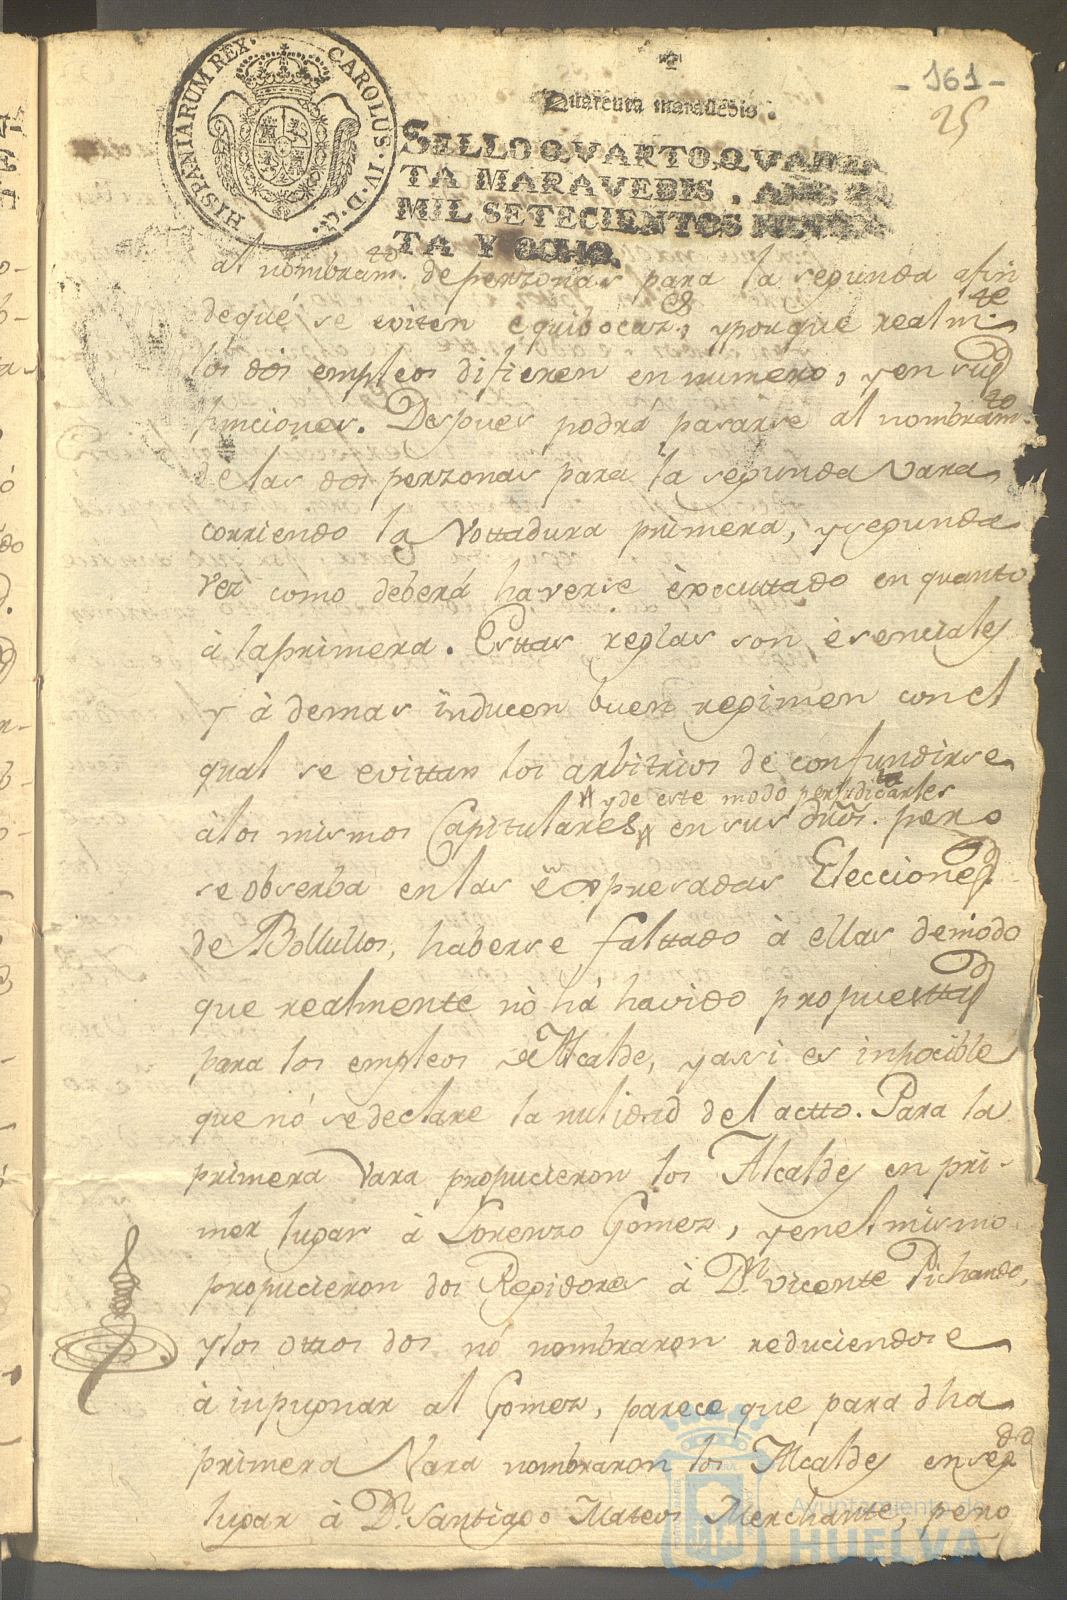 HISPANIARUM REX. CAROLUS. IV. D. G.
- 161 -
25
Quarenta maravedis.
SELLO QVARTO, QVAREN
TA MARAVEDIS, AÑO DE
MIL SETECIENTOS NOVEN
TA Y OCHO.
al nombram.to de perzonas para la segunda afin
de qué se eviten equibocaz.es, y porque realm.te
los dos empleos difieren en numero, y en sus
funciones. Despues podrá pasarse al nombram.to
de las dos perzonas para la segunda Vara
corriendo la Vottadura primera, y segunda
vez como deberá haverse èxecuttado en quanto
à la primera. Esttas reglas son èsenciales
y à demas inducen buen regimen con el
qual se evittan los arbitrios de confundirse
y de este modo perjudicarles
à los mismos Capitulares, en sus dros. pero
se obserba en las expresadas Elecciones
de Bollullos, haberse falttado à ellas de modo
que realmente nò há havido propuesttas
para los empleos de Alcalde, y asi es inposible
que nó se declare la nulidad del actto. Para la
primera Vara propucieron los Alcaldes en pri-
mer lugar à Lorenzo Gomez, y en el mismo
propucieron dos Regidores à D.n Vicente Pichardo,
y los ottros dos nó nombraron reduciendose
à inpugnar al Gomez, parece que para dha
primera Vara nombraron los Alcaldes en seg.do
lugar à D.n Santiago Mateos Merchante, pero
Ayuntamiento de
HUELVA